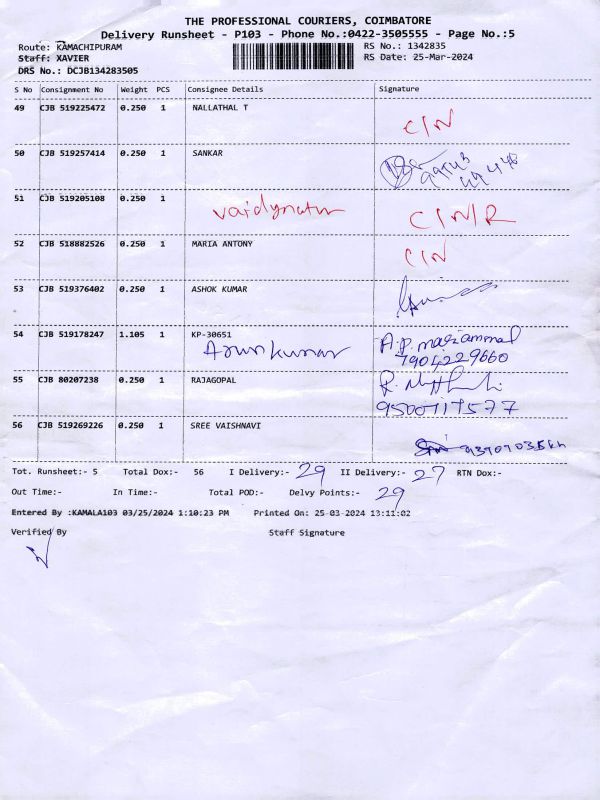 THE PROFESSIONAL COURIERS, COIMBATORE
Delivery Runsheet - P103 - Phone No.:0422-3505555 - Page No.:5
Route: KAMACHIPURAM RS No.: 1342835
Staff: XAVIER RS Date: 25-Mar-2024
DRS No.: DCJB134283505
S No Consignment No Weight PCS Consignee Details Signature
49 CJB 519225472 0.250 1 NALLATHAL T C/N
50 CJB 519257414 0.250 1 SANKAR
51 CJB 519205108 0.250 1 vaidynatur C/N/R
52 CJB 518882526 0.250 1 MARIA ANTONY C/N
53 CJB 519376402 0.250 1 ASHOK KUMAR
54 CJB 519178247 1.105 1 KP-30651 A.P. mariammal
Arunkumar 7904229660
55 CJB 80207238 0.250 1 RAJAGOPAL
9500717577
56 CJB 519269226 0.250 1 SREE VAISHNAVI
Tot. Runsheet:- 5 Total Dox:- 56 I Delivery:- 29 II Delivery:- 27 RTN Dox:-
Out Time:- In Time:- Total POD:- Delvy Points:- 29
Entered By :KAMALA103 03/25/2024 1:10:23 PM Printed On: 25-03-2024 13:11:02
Verified By Staff Signature